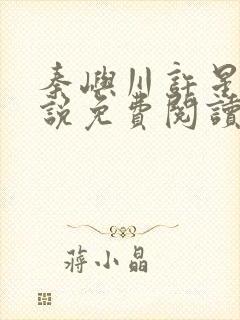 秦嶼川許星
說免費閱讀
蔣小晶